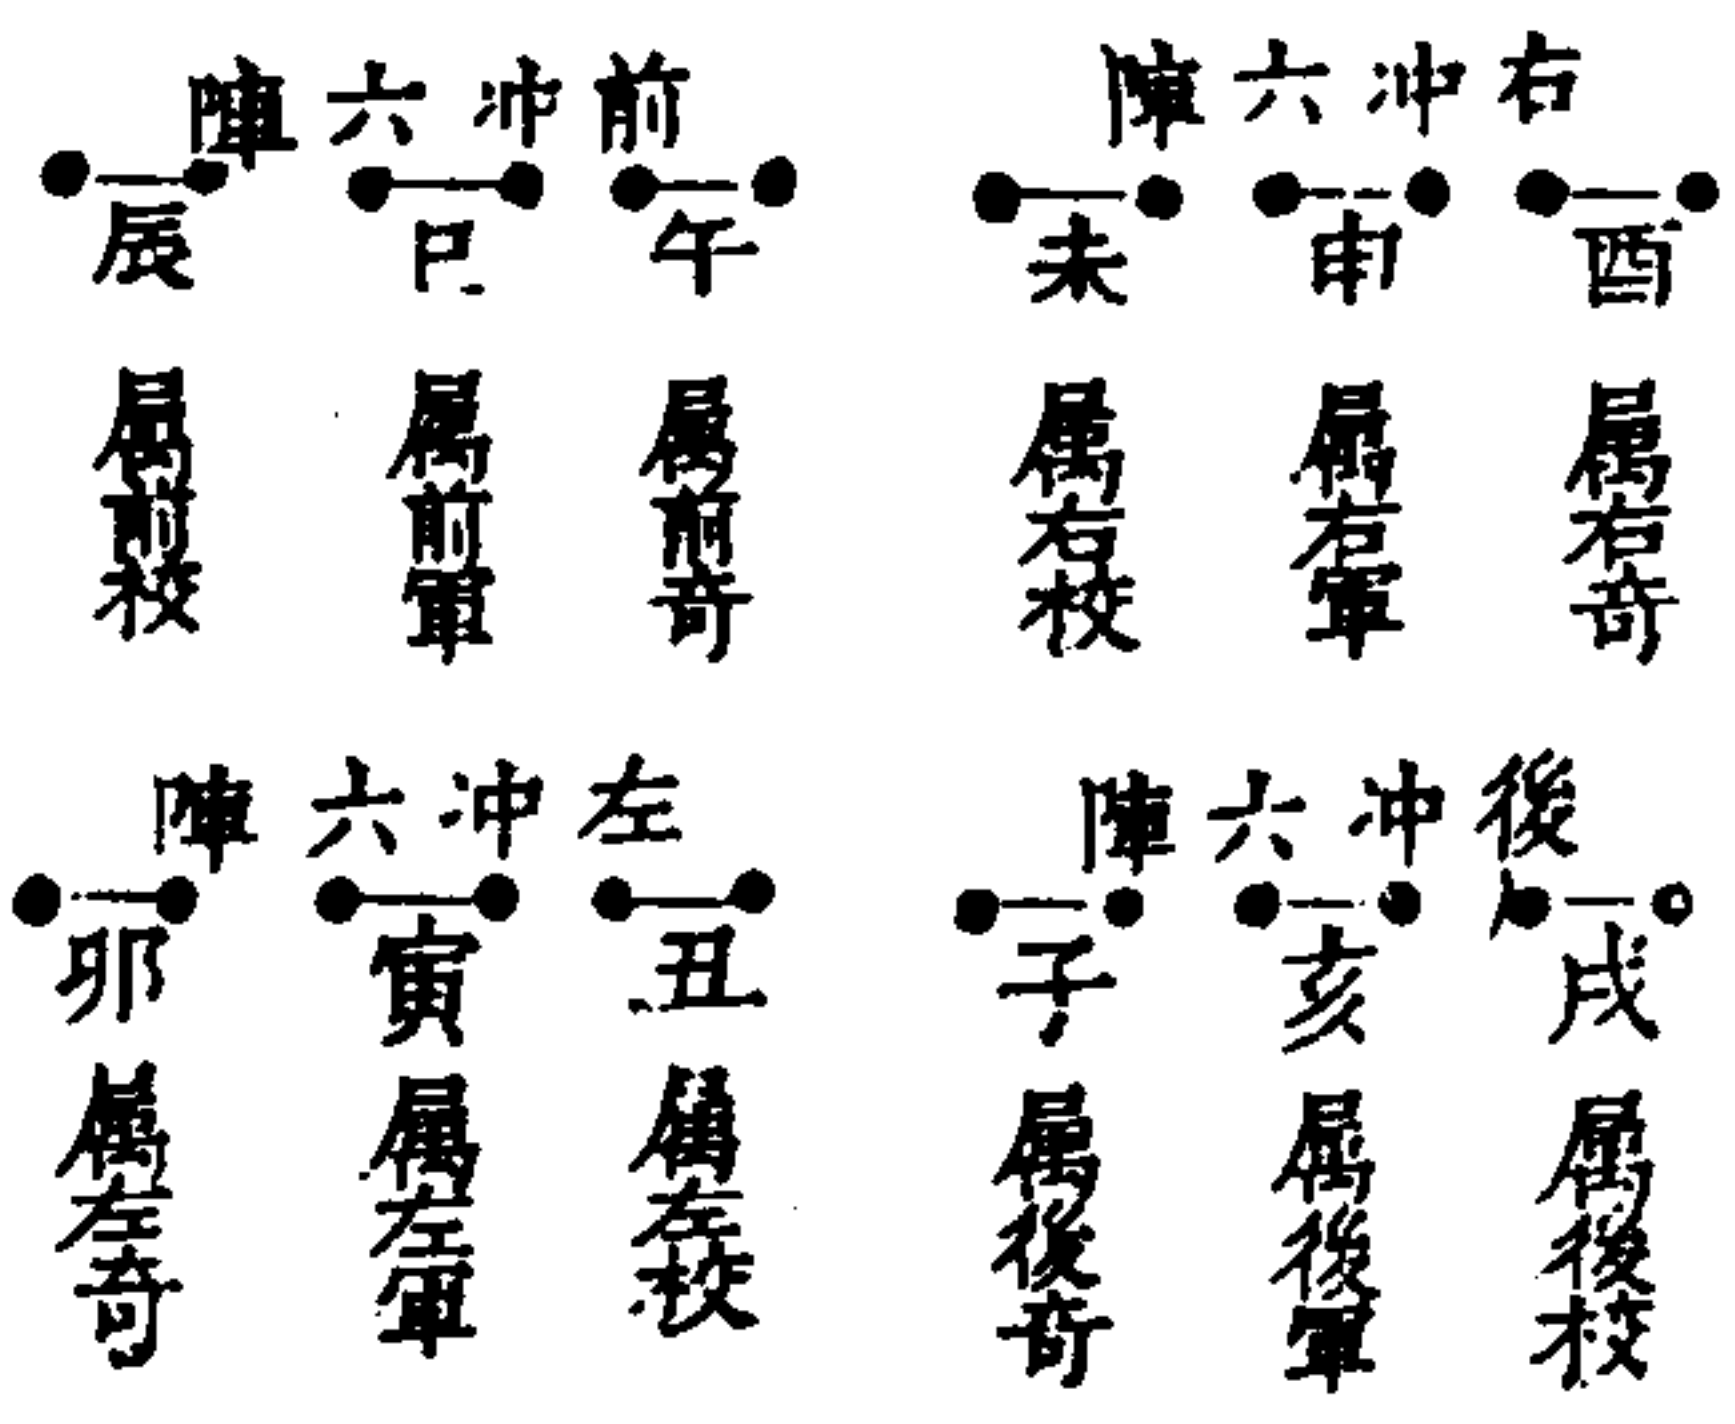 右冲六陣
酉
属右奇
申
属右軍
未
属右校
前冲六陣
午
属前奇
巳
属前軍
辰
属前校
後冲六陣
戌
属後校
亥
属後軍
子
属後奇
左冲六陣
丑
属左校
寅
属左軍
卯
属左奇